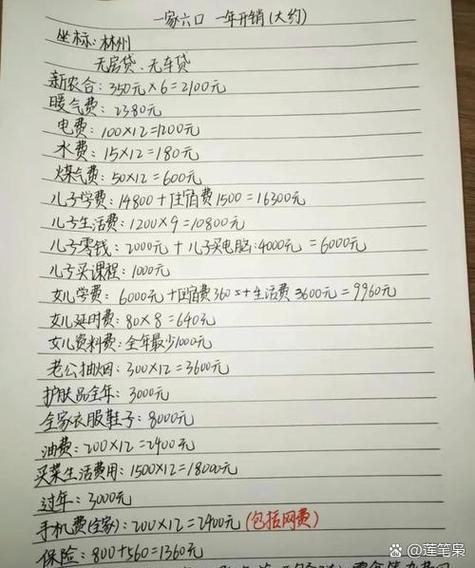 一家六口 一年开销(大约)
坐标:林州
无房贷、无车贷
新农合:350元×6=2100元
暖气费:2380元
电费:100×12=1200元
水费:15×12=180元
煤气费:50×12=600元
儿子学费:14800+住宿费1500=16300元
儿子生活费:1200×9=10800元
儿子零钱:2000元+儿子买电脑:4000元=6000元
儿子买课程:1000元
女儿学费:6000元+住宿费360+生活费3600元=9960元
女儿延时费:80×8=640元
女儿资料费:全年最少1000元
老公抽烟:300×12=3600元
护肤品全年:3000元
全家衣服鞋子:8000元
油费:200×12=2400元
买菜生活费用:1500×12=18000元
过年:3000元
手机费(全家):200×12=2400元(包括网费)
保险:800+560=1360元
莲笔枭